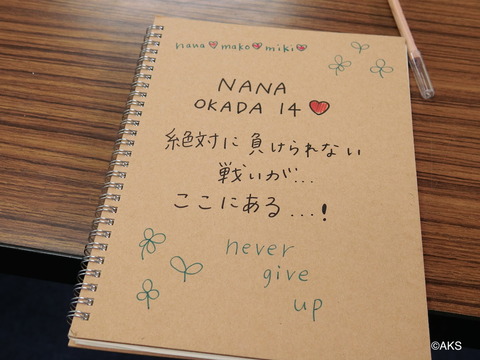 nana♡mako♡miki♡
NANA
OKADA 14♡
絶対に負けられない
戦いが…
ここにある…!
never
give
up
©AKS